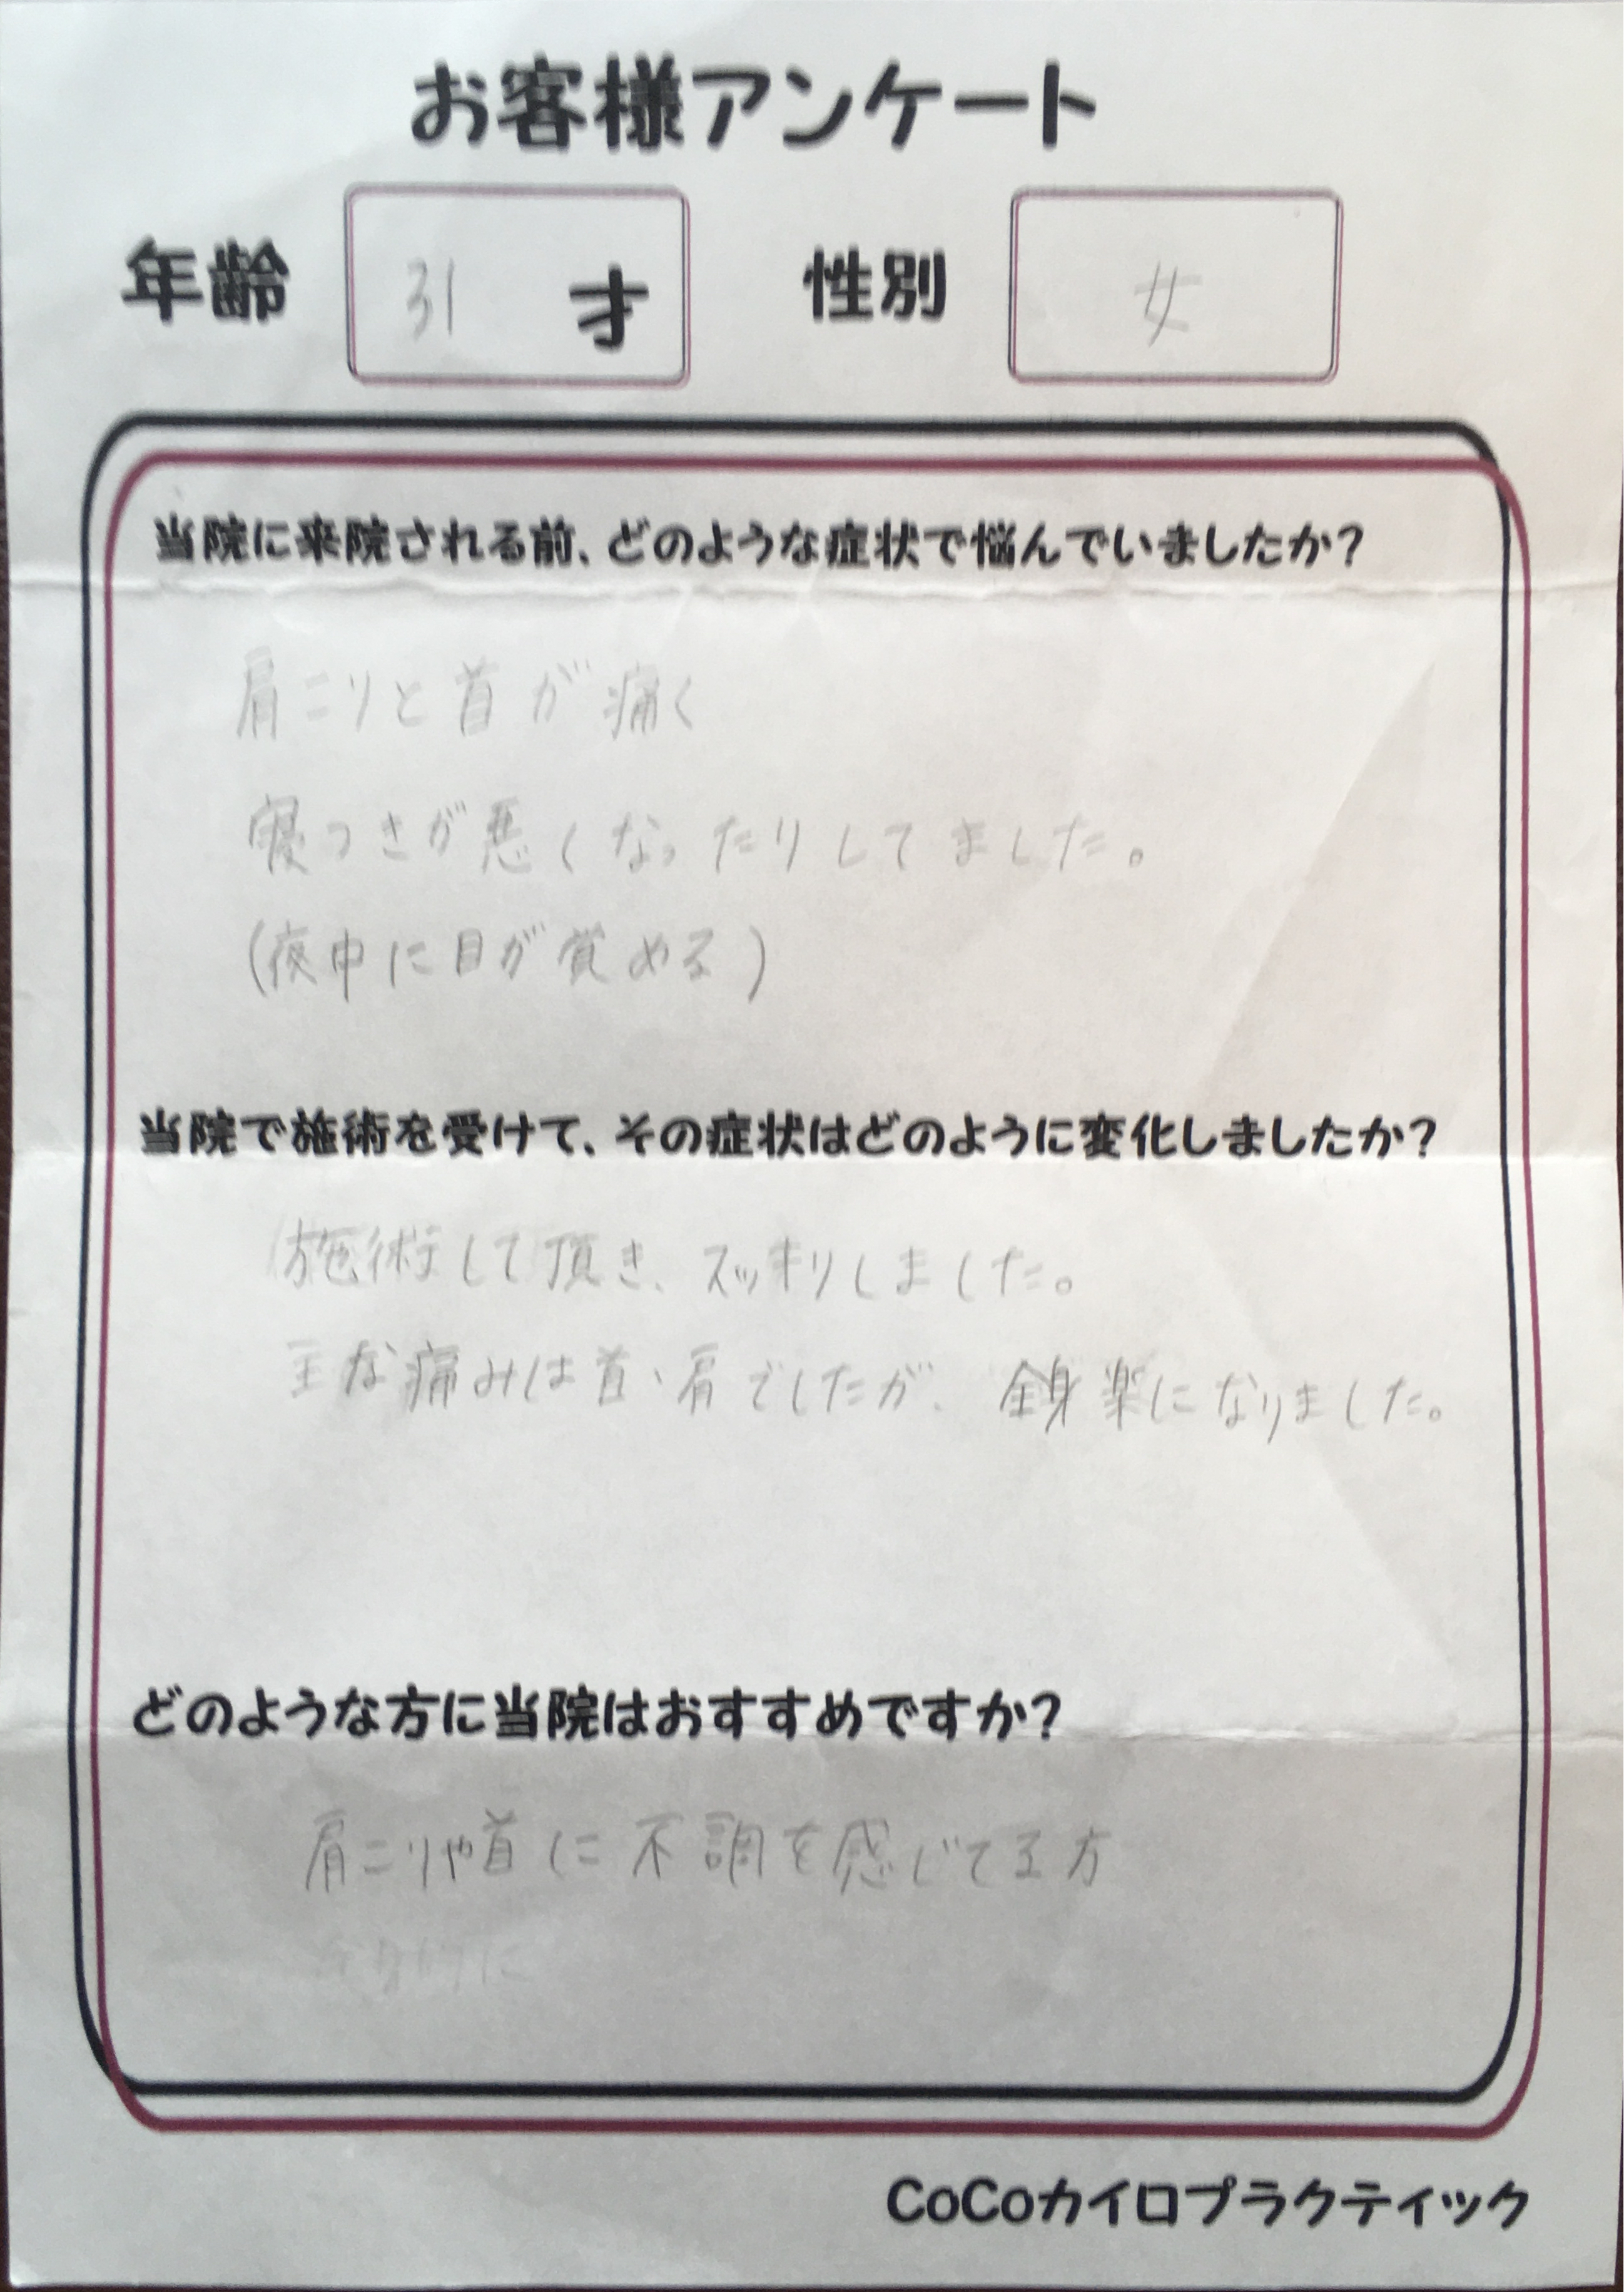 お客様アンケート
年齢 31 才 性別 女
当院に来院される前、どのような症状で悩んでいましたか?
肩こりと首が痛く
寝つきが悪くなったりしてました。
(夜中に目が覚める)
当院で施術を受けて、その症状はどのように変化しましたか?
施術して頂き、スッキリしました。
主な痛みは首、肩でしたが、全身楽になりました。
どのような方に当院はおすすめですか?
肩こりや首に不調を感じてる方
CoCoカイロプラクティック